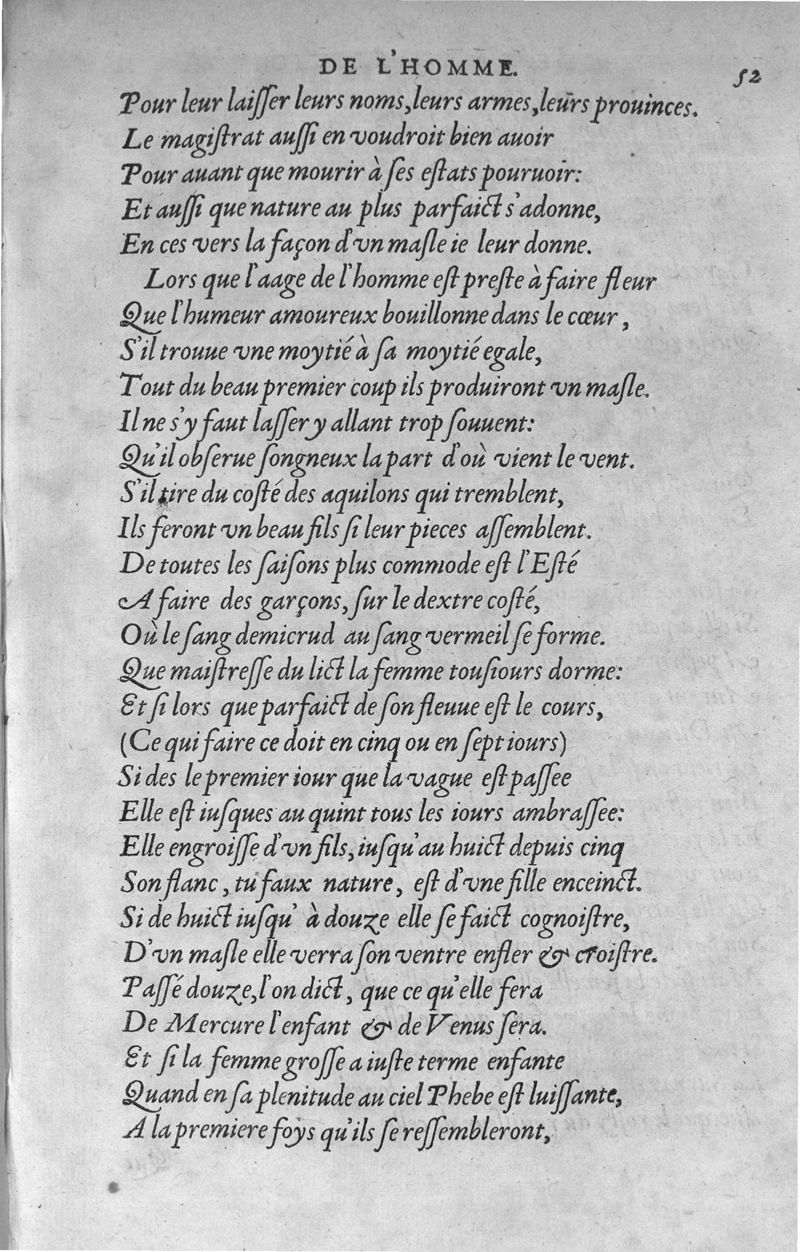 DE L'HOMME.
52
Pour leur laiſſer leurs noms, leurs armes, leurs prouinces.
Le magiſtrat auſſi en voudroit bien auoir
Pour auant que mourir à ſes eſtats pouruoir:
Et auſſi que nature au plus parfaict s'adonne,
En ces vers la façon d'vn maſle ie leur donne.
Lors que l'aage de l'homme eſt preſte à faire fleur
Que l'humeur amoureux bouillonne dans le cœur,
S'il trouue vne moytié à ſa moytié egale,
Tout du beau premier coup ils produiront vn maſle.
Il ne s'y faut laſſer y allant trop ſouuent:
Qu'il obſerue ſongneux la part d'où vient le vent.
S'il tire du coſté des aquilons qui tremblent,
Ils feront vn beau fils ſi leur pieces aſſemblent.
De toutes les ſaiſons plus commode eſt l'Eſté
A faire des garçons, ſur le dextre coſté,
Où le ſang demicrud au ſang vermeil ſe forme.
Que maiſtreſſe du lict la femme touſiours dorme:
Et ſi lors que parfaict de ſon fleuue eſt le cours,
(Ce qui faire ce doit en cinq ou en ſept iours)
Si des le premier iour que la vague eſt paſſee
Elle eſt iuſques au quint tous les iours ambraſſee:
Elle engroiſſe d'vn fils, iuſqu'au huict depuis cinq
Son flanc, tu faux nature, eſt d'vne fille enceinct.
Si de huict iuſqu' à douze elle ſe faict cognoiſtre,
D'vn maſle elle verra ſon ventre enfler & croiſtre.
Paſſé douze, l'on dict, que ce qu'elle fera
De Mercure l'enfant & de Venus ſera.
Et ſi la femme groſſe a iuſte terme enfante
Quand en ſa plenitude au ciel Phebe eſt luiſſante,
A la premiere foys qu'ils ſe reſſembleront,